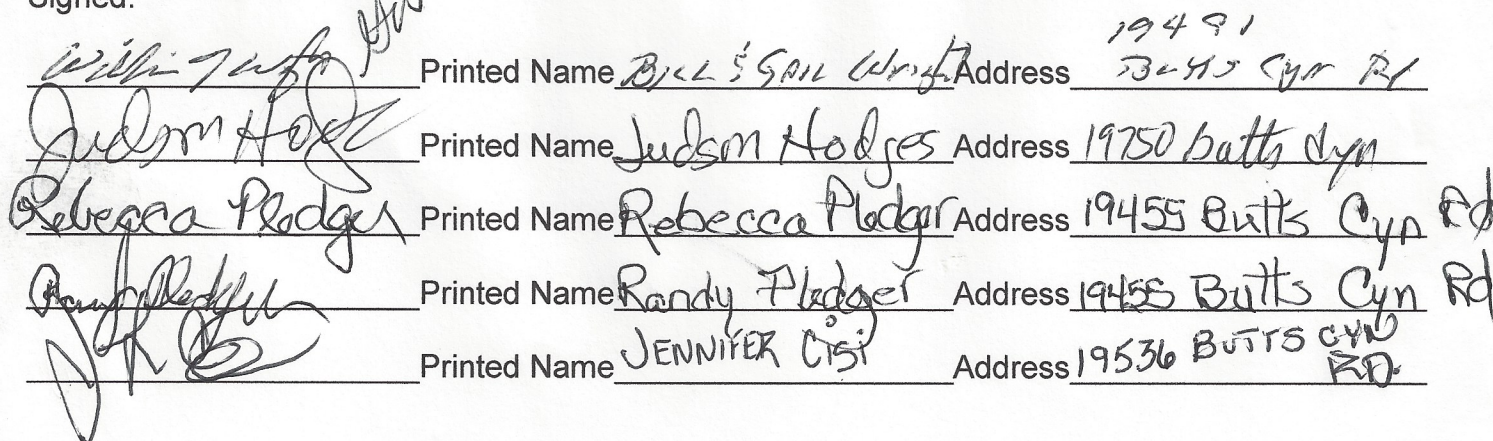 Signed:
Printed Name Bill & Gail Wright Address 19481 Butts Cyn Rd
Judson Hodges Printed Name Judson Hodges Address 19750 butts Cyn
Rebecca Pledger Printed Name Rebecca Pledger Address 19455 Butts Cyn Rd
Randy Pledger Printed Name Randy Pledger Address 19455 Butts Cyn Rd
Printed Name JENNIFER Cisi Address 19536 BUTTS CYN RD.